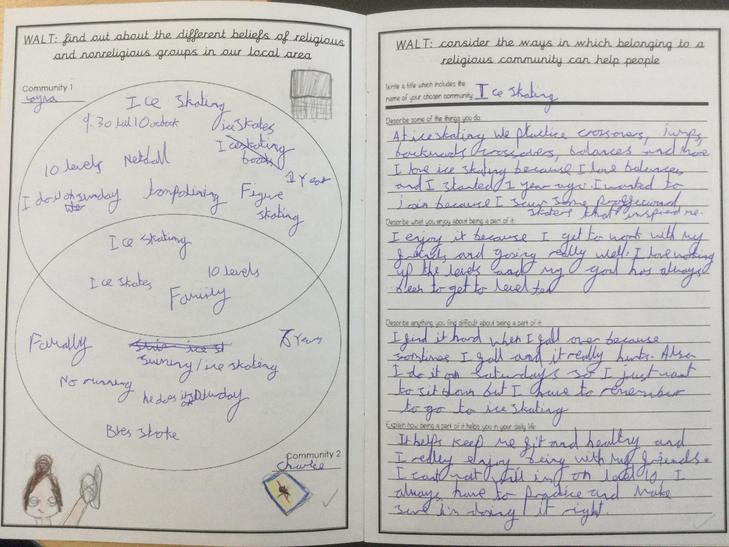 WALT: find out about the different beliefs of religious
and nonreligious groups in our local area
Community 1
Ice Skating
9.30 till 10 oclock
ice skates
10 levels
Netball
Ice skating
1 Year
I do it on sunday
Figure
skating
Ice skating
Ice skates
10 levels
Family
Family
7 Years
/ ice skating
No running
he does it on
Community 2
Charlie
WALT: consider the ways in which belonging to a
religious community can help people
Write a title which includes the
name of your chosen community
Ice skating
Describe some of the things you do
At ice skating we practice crossovers, jumps,
backwards crossovers, balances and more
I love ice skating because I love balances
and I started 1 year ago. I wanted to
join because I saw some
skaters that inspired me.
Describe what you enjoy about being a part of it
I enjoy it because I get to work with my
friends and going really well. I love moving
up the levels and my goal has always
been to get to level ten
Describe anything you find difficult about being a part of it
I find it hard when I fall over because
somtimes I fall and it really hurts. Also
I do it on saturdays so I just want
to sit down but I have to remember
to go to ice skating
Explain how being a part of it helps you in your daily life
It helps keep me fit and healthy and
I really enjoy being with my friends.
I can not on level 10, I
always have to practice and make
sure I'm doing it right.